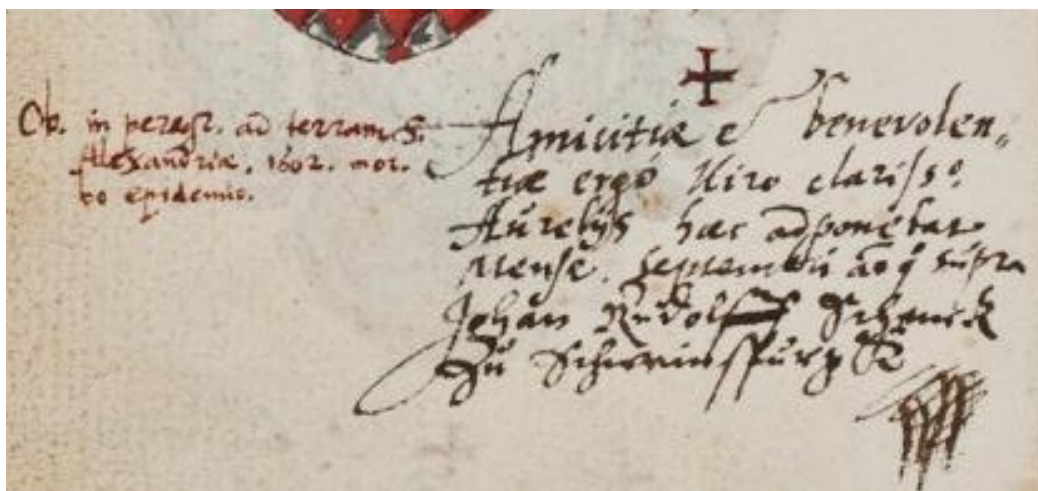 Ob. in peregr. ad terram S.
Alexandriæ, 1602. mor-
bo epidemio.
Amicitiæ et benevolen„
tiæ ergó Viro clariſsº.
Aurelijs hæc adponebat
mense. Septembri aº q̃ supra
Johan Rudolff Schenck
Zu Schweinſpurg